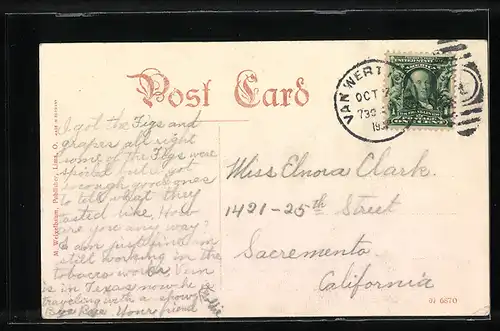 Post Card
VAN WERT
OCT
730
I got the Figs and
grapes all right
some of the Figs were
spoiled but I got
enough good ones
to tell what they
tasted like. How
are you any way?
I am just fine am
still working in the
tobacco works. Vern
is in Texas now he is
traveling with a show
Bye Bye. Your friend
Miss Elnora Clark.
1421-25th Street
Sacremento
California
M. Weixelbaum, Publisher, Lima, O.